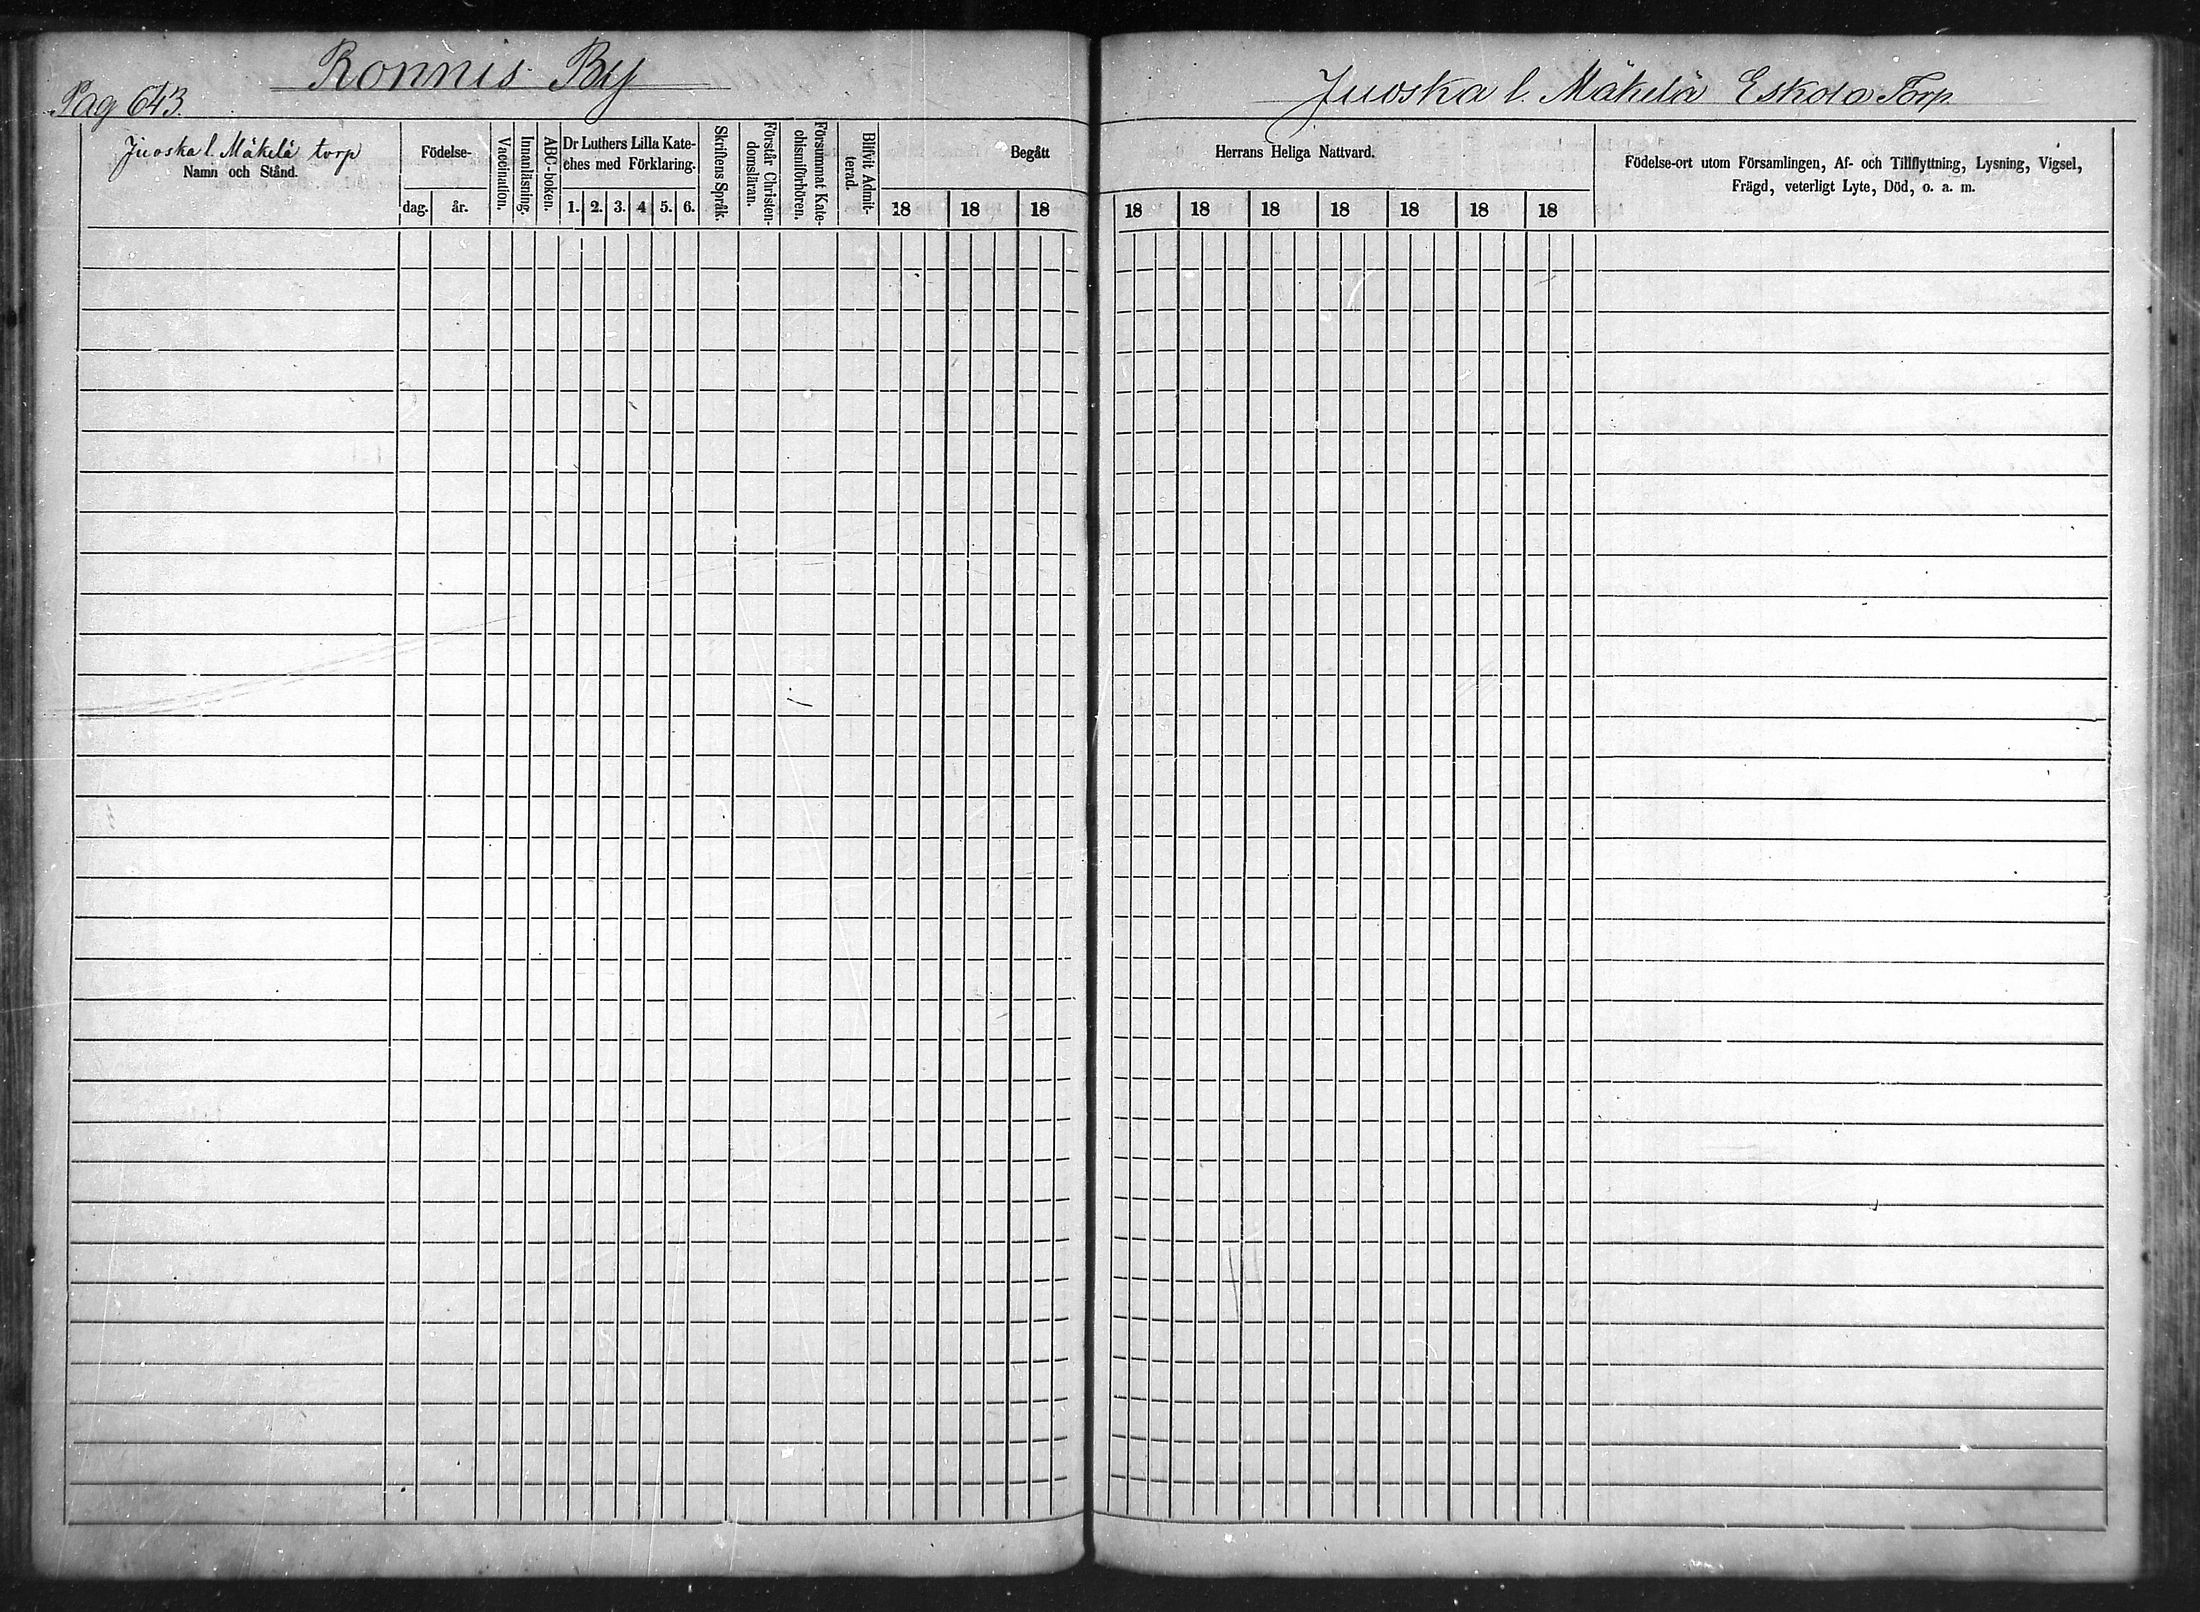 Ronnis By
Juoska l. Mäkelä Eskola Torp.
Pag 643.
Juoska l. Mäkelä torp
Namn och Stånd.
Födelse-
dag.
år.
Vaccination.
Innanläsning.
ABC-boken.
Dr Luthers Lilla Kate-
ches med Förklaring.
1. 2. 3. 4 5. 6.
Skriftens Språk.
Förstår Christen-
domsläran.
Försummat Kate-
chismiförhören.
Blifvit Admit-
terad.
Begått
18 18 18
Herrans Heliga Nattvard.
18 18 18 18 18 18 18
Födelse-ort utom Församlingen, Af- och Tillflyttning, Lysning, Vigsel,
Frägd, veterligt Lyte, Död, o. a. m.